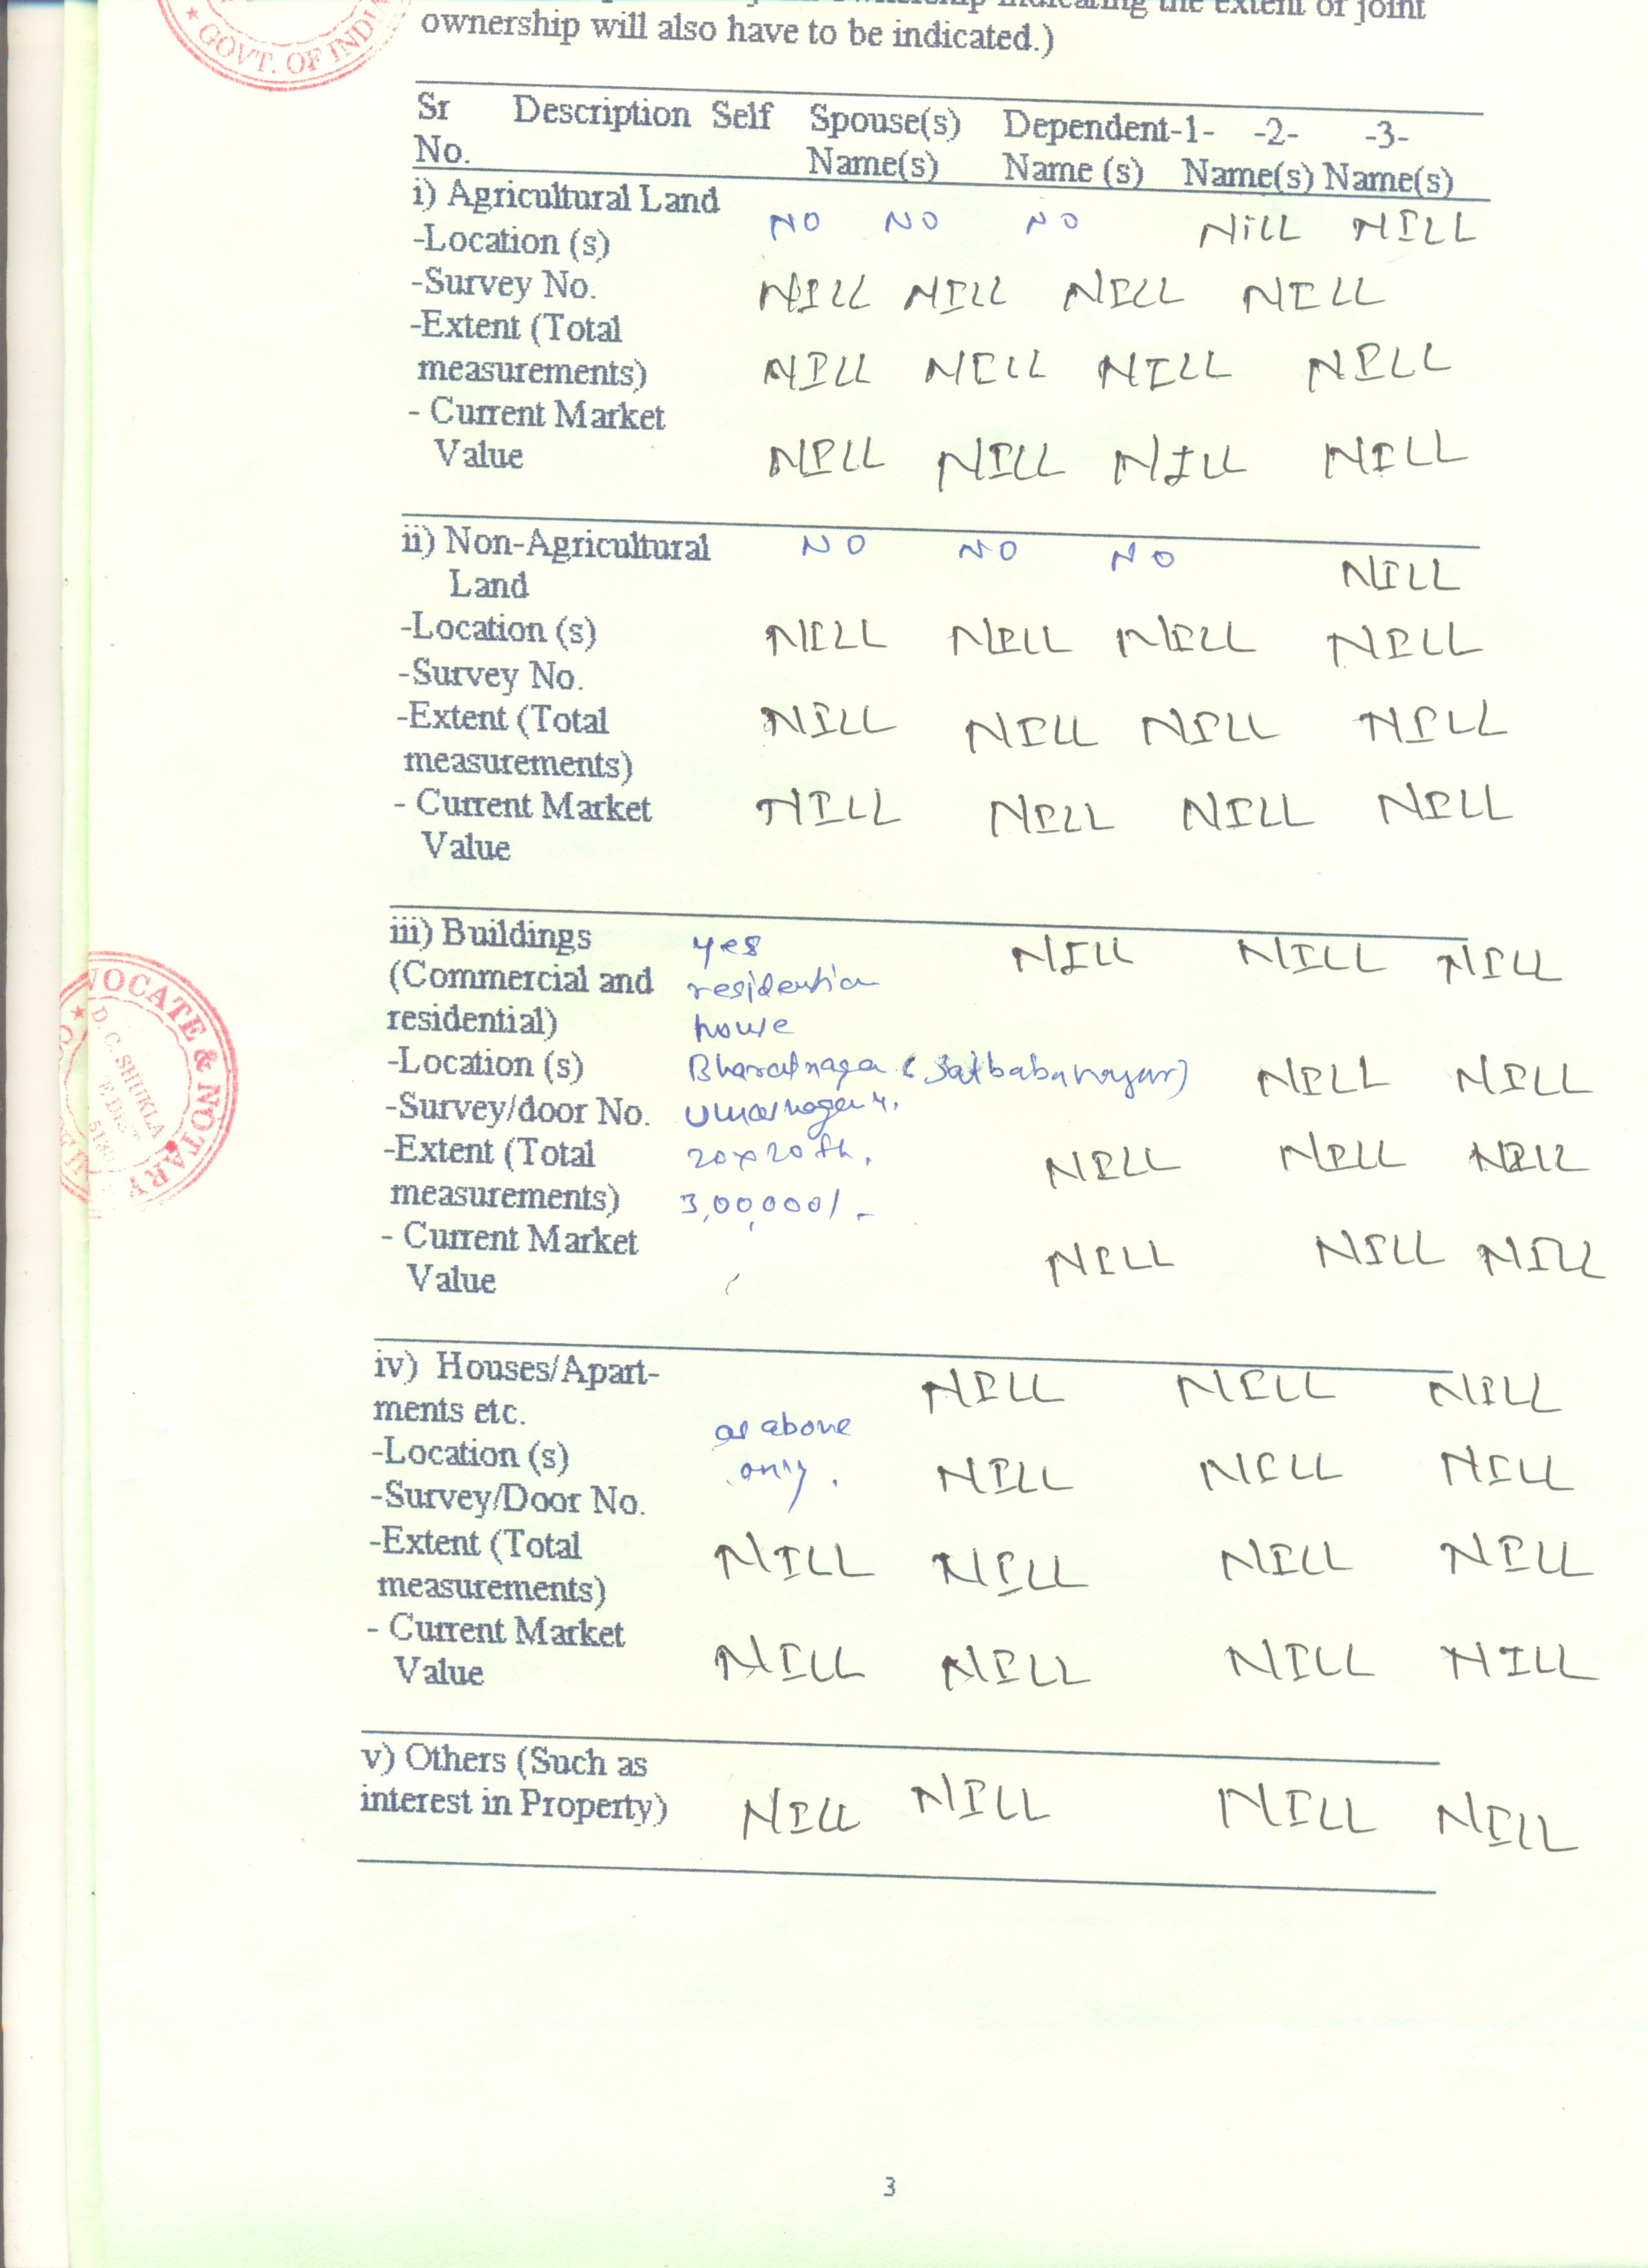 indicating the extent of joint
ownership will also have to be indicated.)
★ GOVT. OF INDIA
Sr Description Self Spouse(s) Dependent-1- -2- -3-
No. Name(s) Name (s) Name(s) Name(s)
i) Agricultural Land
-Location (s) NO NO NO NiLL NILL
-Survey No. NILL NILL NILL NILL
-Extent (Total
measurements) NILL NILL NILL NILL
- Current Market
Value NILL NILL NILL NILL
ii) Non-Agricultural NO NO NO
Land NILL
-Location (s) NILL NILL NILL NILL
-Survey No.
-Extent (Total NILL NILL NILL NILL
measurements)
- Current Market NILL NILL NILL NILL
Value
iii) Buildings yes NILL NILL NILL
(Commercial and residential
residential) house
-Location (s) Bharatnaga (Saibabanagar) NILL NILL
-Survey/door No. Umarnager
-Extent (Total 20x20 ft. NILL NILL NILL
measurements) 3,00,000/-
- Current Market NILL NILL NILL
Value
VOCATE & NOTARY
D. C. SHUKLA
iv) Houses/Apart- NILL NILL NILL
ments etc. as above
-Location (s) only. NILL NILL NILL
-Survey/Door No.
-Extent (Total NILL NILL NILL NILL
measurements)
- Current Market
Value NILL NILL NILL NILL
v) Others (Such as
interest in Property) NILL NILL NILL NILL
3